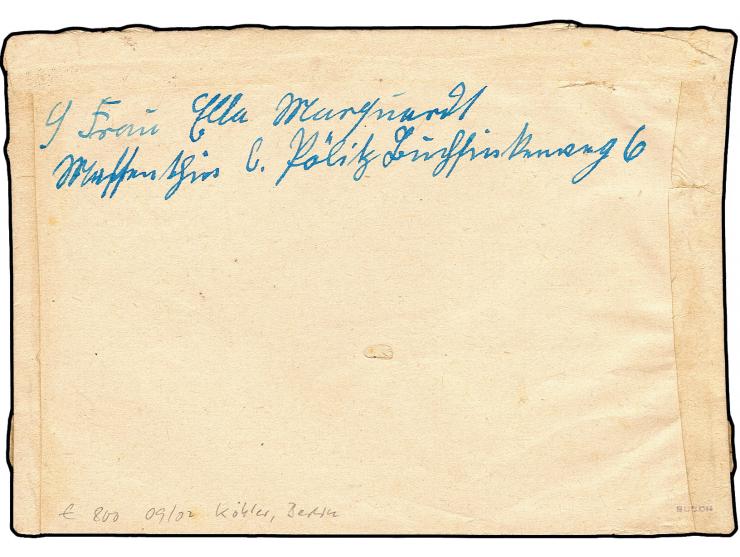 Frau Ella Marquardt
Messenthin b. Pölitz Buchfinkenweg 6
€ 800 09/02 Köhler, Berlin